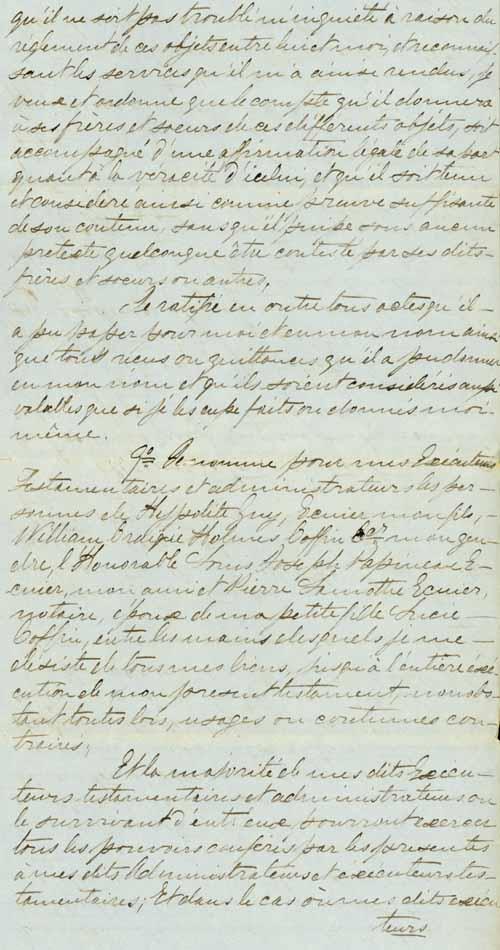 qu'il ne soit pas troublé ni inquiété à raison du
règlement de ces objets entre lui et moi, et reconnais-
sant les services qu'il m'a ainsi rendus, je
veux et ordonne que le compte qu'il donnera
à ses frères et soeurs de ces différents objets, soit
accompagné d'une affirmation légale de sa part
quant à la véracité d'icelui, et qu'il soit tenu
et considéré ainsi comme preuve suffisante
de son contenu, sans qu'il puisse sous aucun
pretexte quelconque être contesté par ses dits
frères et soeurs ou autres,
Je ratifie en outre tous actes qu'il
a pu passer pour moi et en mon nom ainsi
que tous recus ou quittances qu'il a pu donner
en mon nom et qu'ils soient considérés aussi
valables que si je les eusse faits ou donnés moi-
même.
9o Je nomme pour mes Exécuteurs
Testamentaires et administrateurs les per-
sonnes de Hyppolite Guy, Ecuier mon fils,
William Holmes Coffin Ecr mon gen-
dre, l'Honorable Louis Joseph Papineau E-
cuier, mon ami et Pierre Lamothe Ecuier,
notaire, époux de ma petite fille Lucie
Coffin, entre les mains desquels je me
désiste de tous mes biens, jusqu'à l'entière éxé-
cution de mon présent testament nonobs-
tant toutes lois, usages ou coutumes con-
traires;
Et la majorité de mes dits Exécu-
teurs testamentaires et administrateurs ou
le survivant d'entr'eux pourront exercer
tous les pouvoirs conférés par les présentes
à mes dits Administrateurs et éxécuteurs tes-
tamentaires; Et dans le cas où mes dits exécu
teurs